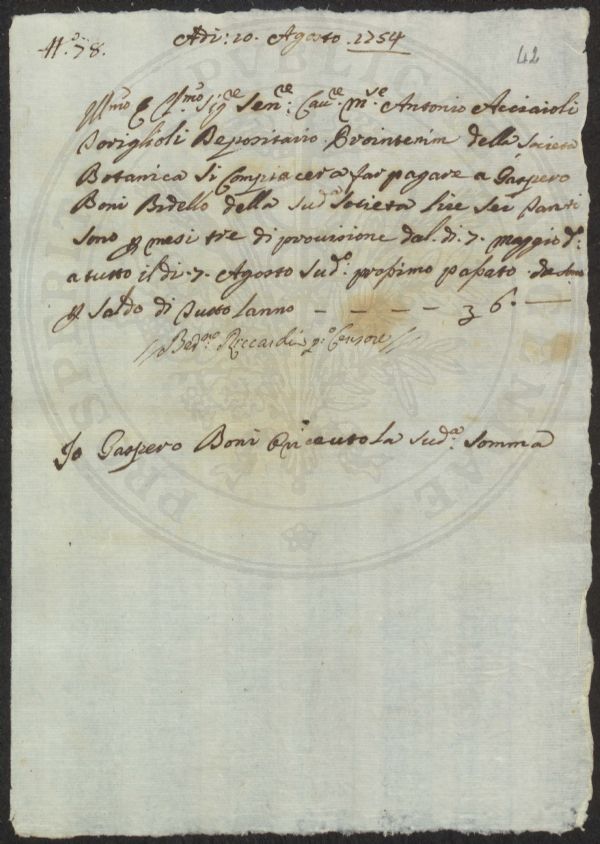 N.º 78.
Adi: 10. Agosto. 1754
42
Ill.mo e Cl.mo Sig.re Sen.re Cav.re M.se Antonio Acciaioli
Toriglioli Depositario Prointerim della Società
Botanica Si Compiacera far pagare a Gaspero
Boni Bidello della Sud.a Società lire Sei Tanti
Sono p mesi tre di provisione dal. di. 7. maggio
a tutto il di. 7. Agosto Sud.o prossimo passato
p Saldo di Tutto lanno - - - - 6. —
Bed.no Riccardi p.o Censore
Io Gaspero Boni ò ricauto la Sud.a Somma
PRO SPIRITU
PUBLIC